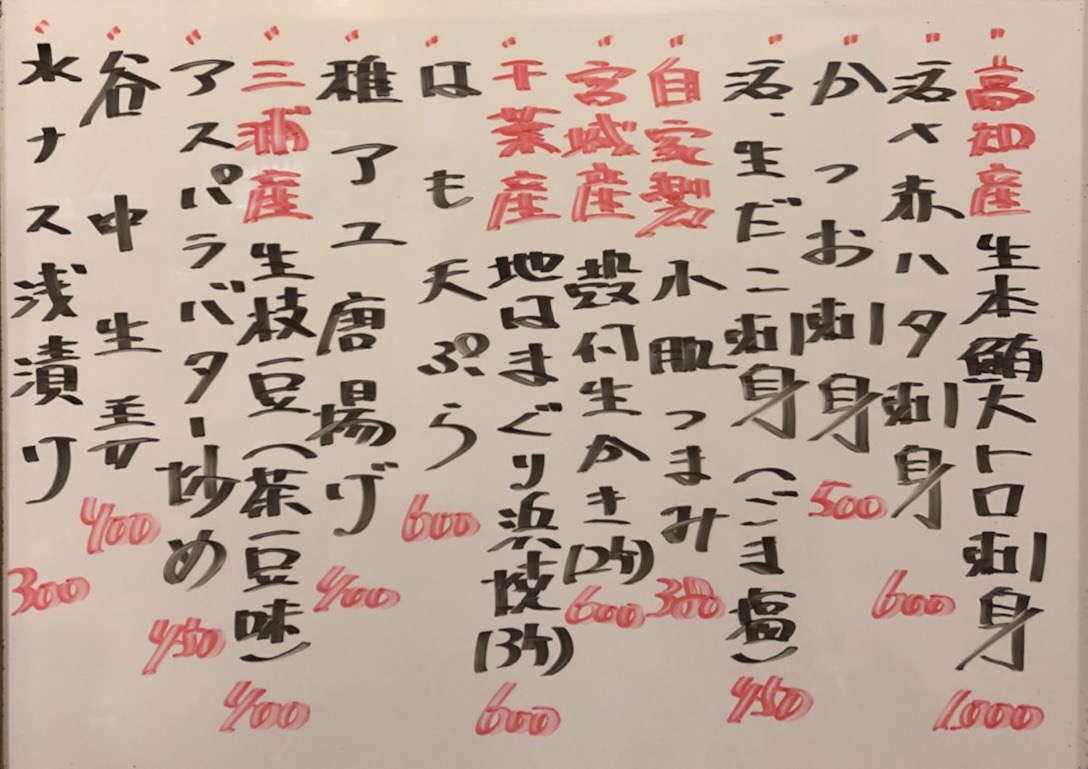 〃高知産 生本鮪大トロ刺身 1,000
〃活〆赤ハタ刺身 600
〃かつお刺身 500
〃活・生だこ刺身(ごま塩) 450
〃自家製 小肌つまみ 380
〃宮城産 殻付生かき(2ヶ) 600
〃千葉産 地はまぐり浜焼(3ヶ) 600
〃はも天ぷら 600
〃稚アユ唐揚げ 400
〃三浦産 生枝豆(茶豆味) 400
〃アスパラバター炒め 450
〃谷中生姜 400
〃水ナス浅漬り 300